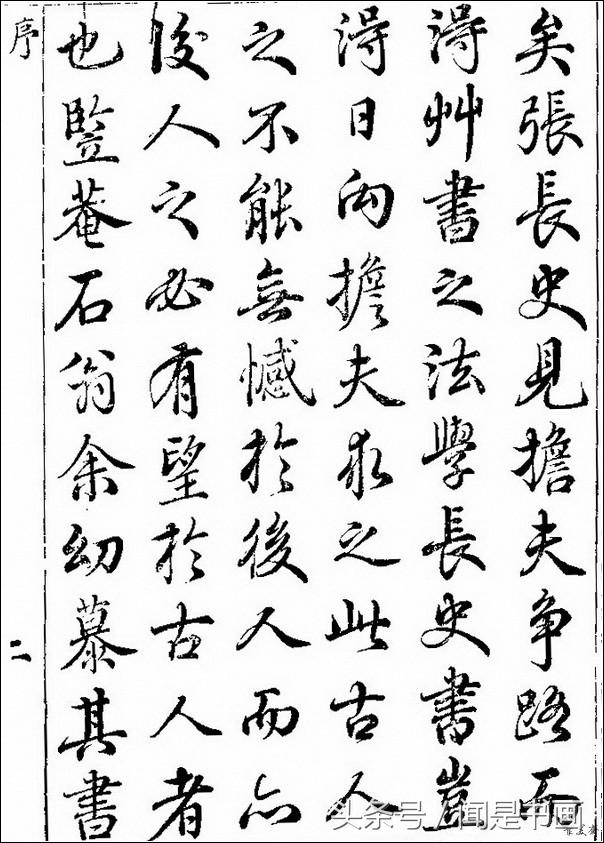 矣張長史見擔夫争路而
得艸書之法學長史書豈
得日向擔夫求之此古人
之不能無憾於後人而亦
後人之必有望於古人者
也豎菴石翁余幼慕其書
序
二
头条号/闻是书画